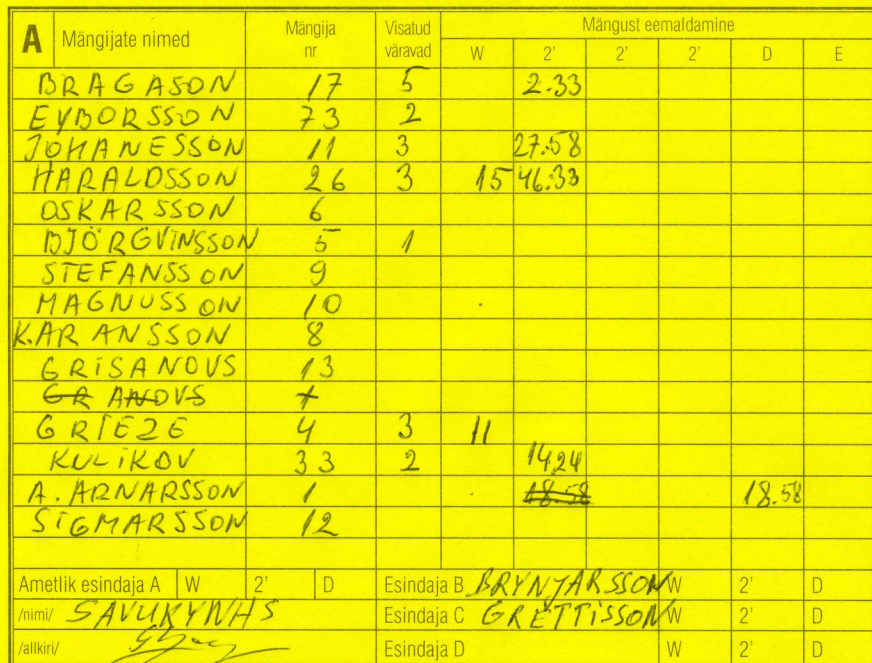 A Mängijate nimed Mängija nr Visatud väravad Mängust eemaldamine
W 2' 2' 2' D E
BRAGASON 17 5 2.33
EYBORSSON 73 2
JOHANESSON 11 3 27.58
HARALDSSON 26 3 15 46.33
OSKARSSON 6
BJÖRGVINSSON 5 1
STEFANSSON 9
MAGNUSSON 10
K.ARANSSON 8
GRISANOVS 13
GRANOVS
GRIEZE 4 3 11
KULIKOV 33 2 14.24
A. ARNARSSON 1 18.58 18.58
SIGMARSSON 12
Ametlik esindaja A W 2' D Esindaja B BRYNJARSSON W 2' D
/nimi/ SAVUKYNHS Esindaja C GRETTISSON W 2' D
/allkiri/ Esindaja D W 2' D